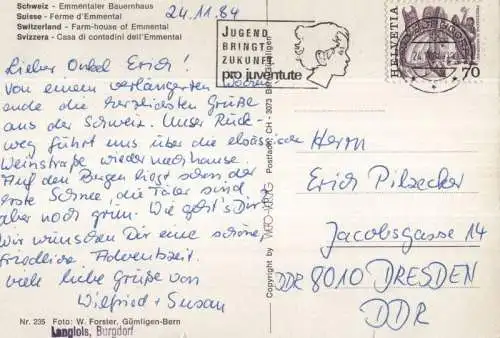 Schweiz - Emmentaler Bauernhaus
Suisse - Ferme d'Emmental
Switzerland - Farm-house of Emmental
Svizzera - Casa di contadini dell'Emmental
24.11.84
Lieber Onkel Erich!
Von einem verlängerten Wochen-
ende die herzlichsten Grüße
aus der Schweiz. Unser Rück-
weg führt uns über die elsässische
Weinstraße wieder nach Hause.
Auf den Bergen liegt schon der
erste Schnee, die Täler sind
aber noch grün. Wie geht's Dir?
Wir wünschen Dir eine schöne,
friedliche Adventszeit.
viele liebe Grüße von
Wilfried + Susan
Nr. 235 Foto: W. Forster, Gümligen-Bern
Langlois, Burgdorf
Copyright by
Postfach: CH - 3073 Gümligen
JUGEND
BRINGT
ZUKUNFT
pro juventute
HELVETIA
70
Herrn
Erich Pilzecker
Jacobsgasse 14
DDR 8010 DRESDEN
DDR